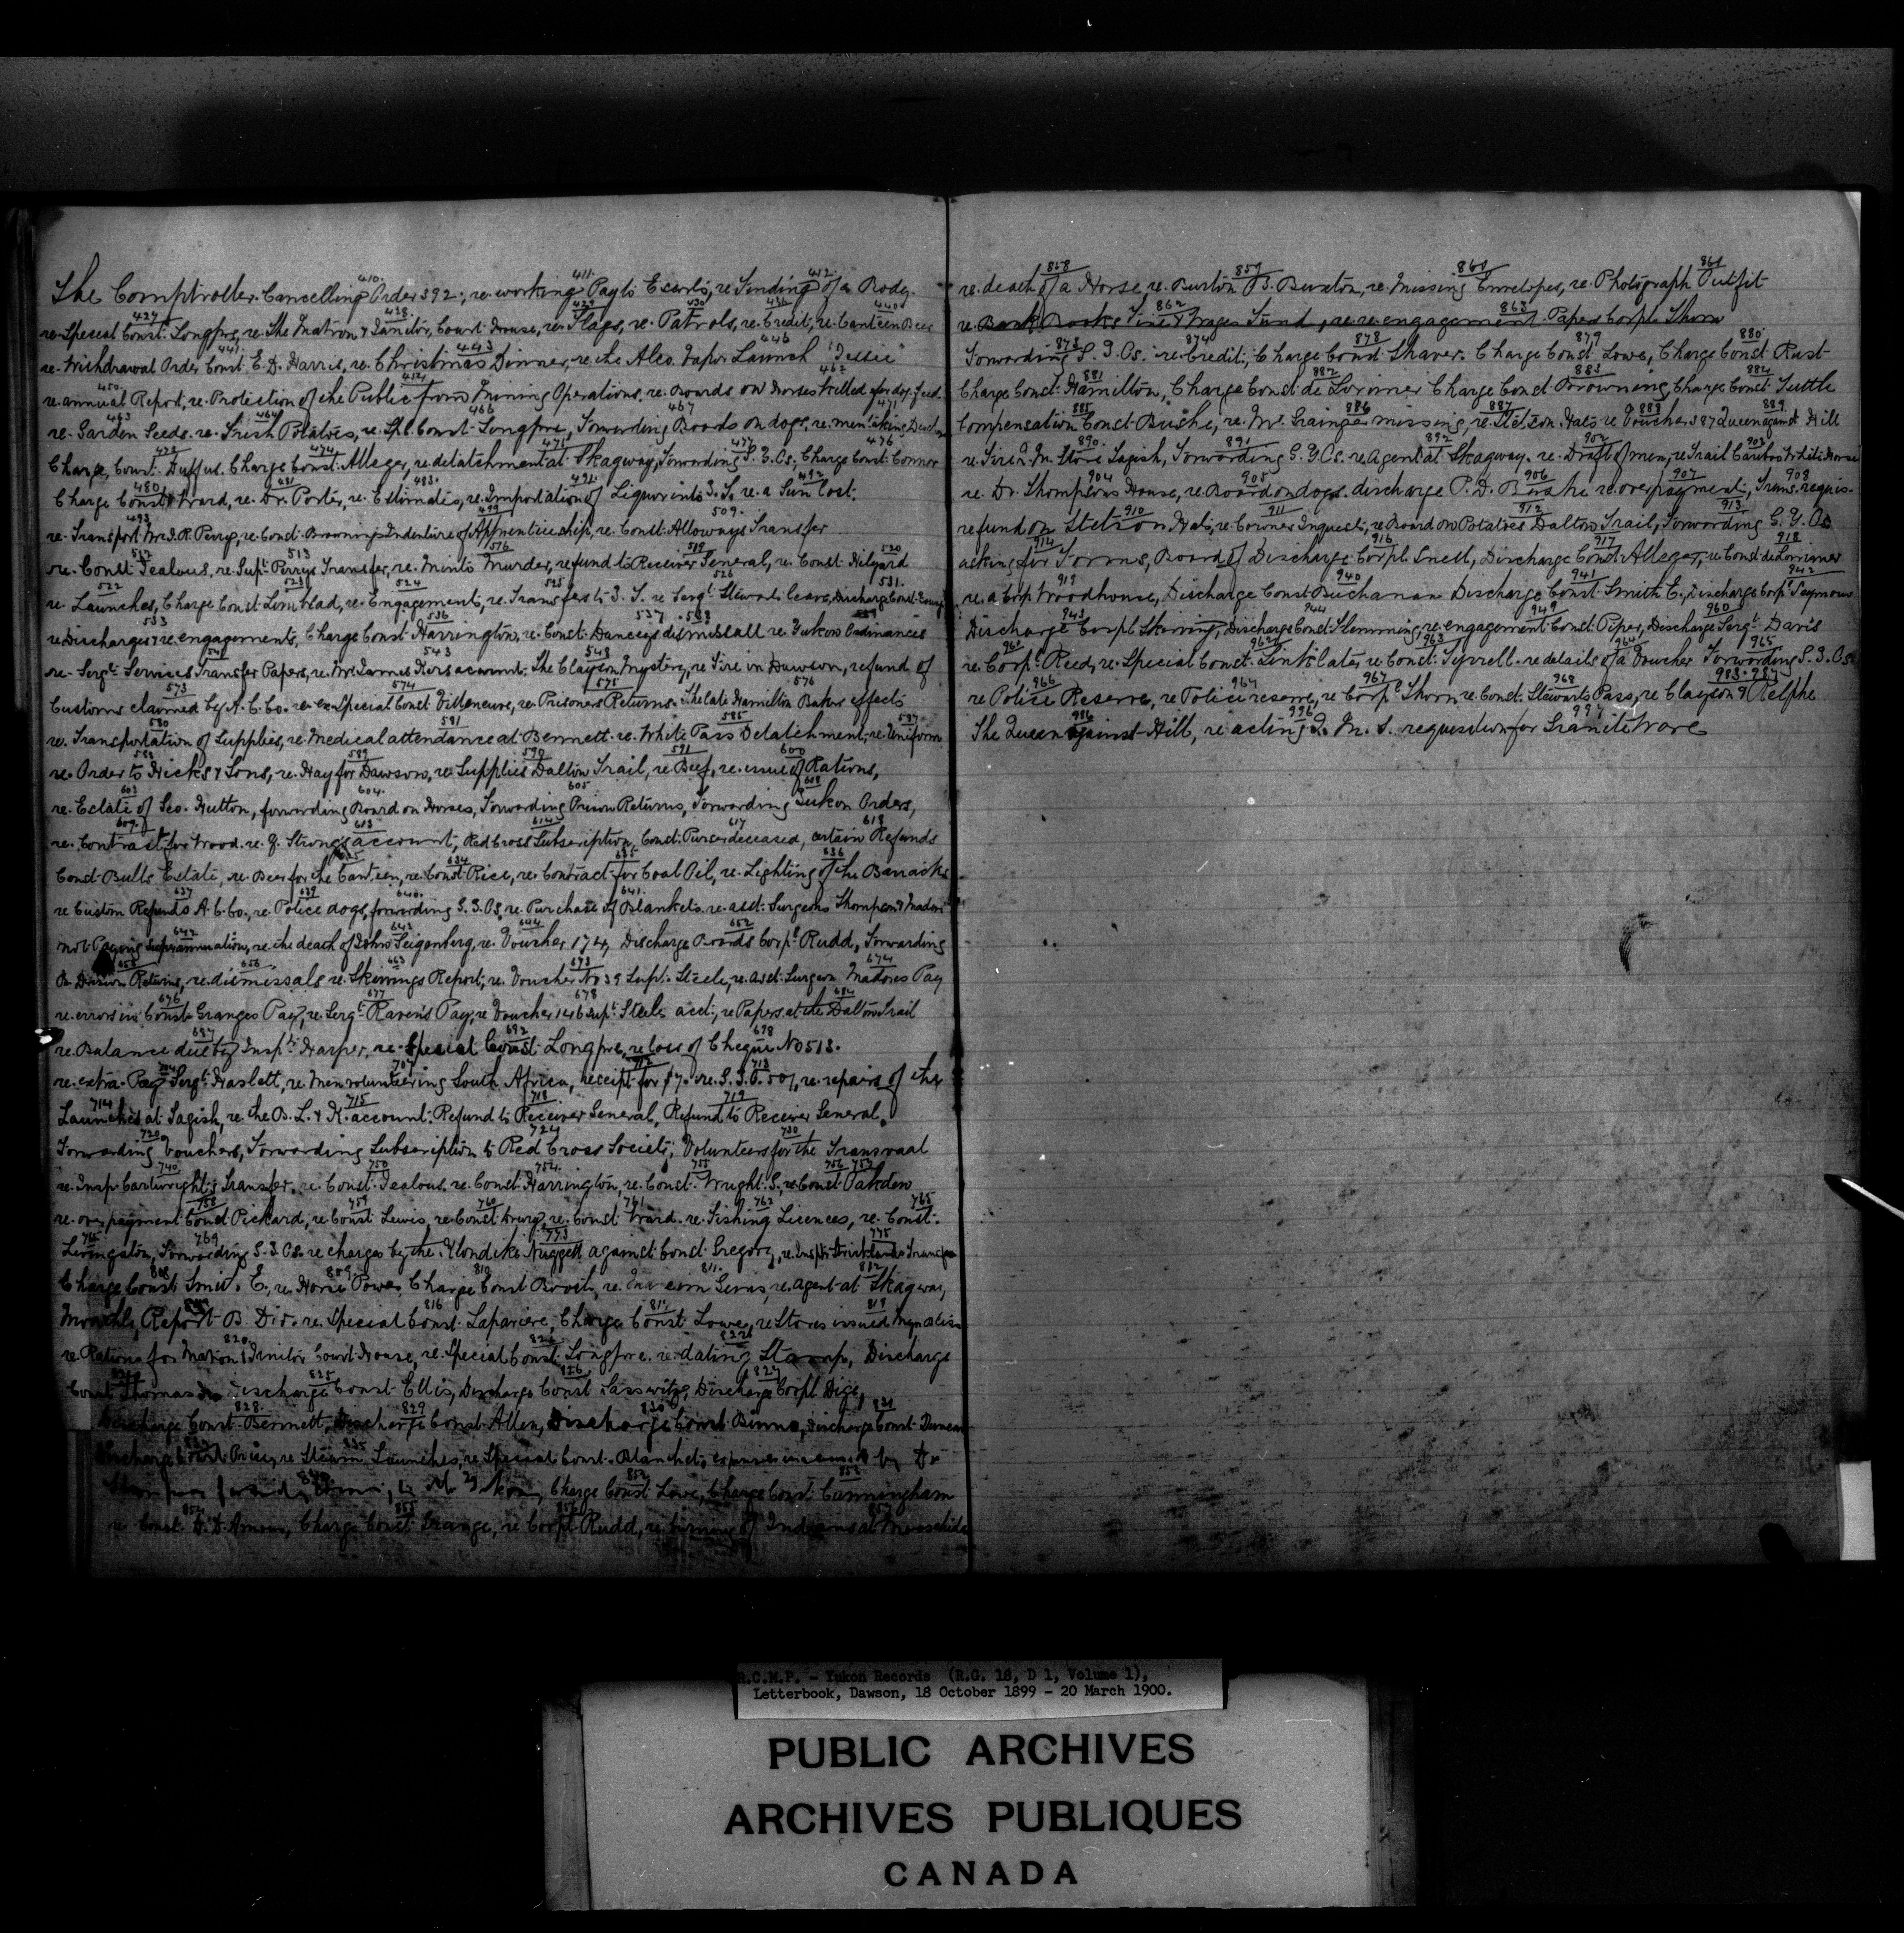 410. 411. 412.
The Comptroller. Cancelling Order 592, re working Pay to Escorts, re Finding of a Body.
427 428. 429 430 440
re Special Const. Longpre, re The Matron & Janitor, Court House, re Flags, re Patrols, re Credit, re Canteen Beer
441 443 446
re Withdrawal Order Const. E. D. Harris, re Christmas Dinner, re the Alco. Vapor Launch "Jessie"
450. 451 462
re annual Report, re Protection of the Public from Mining Operations, re Boards on Horses killed for dog feed.
463 464 466 467 471
re Garden Seeds. re Irish Potatoes, re Spl. Const. Longpre, Forwarding Boards on dogs, re men taking
472 474 475 477 476
Charge Const. Duffus. Charge Const. Alleger, re detatchment at Skagway, Forwarding G. G. Os, Charge Const. Connor
480 481 483. 491. 492
Charge Const. Ward, re Dr. Porter, re Estimates, re Importation of Liquor into Y. T. re a Gun Lost.
493 499 509.
re Transport Mr. J. R. Perry, re Const. Brownings Indenture of Apprenticeship, re Const. Alloways Transfer
512 513 516 519 520
re Const. Jealous, re Supt. Perrys Transfer, re Mento Murder, refund to Receiver General, re Const. Hilyard
522 523 524 525 526 531.
re Launches, Charge Const. Lindblad, re Engagement, re Transfers to Y. T. re Sergt. Stewarts leave, Discharge Const.
533 536 537
re Discharges & re engagements, Charge Const. Harrington, re Const. Danceys dismissall re Yukon Ordinances
541 543 548
re Sergt. Services Transfer Papers, re Mr. James Kers account. The Clayson Mystery, re Fire in Dawson, refund of
573 574 575 576
Customs claimed by A. C. Co. re ex Special Const. Villeneuve, re Prisoners Returns. The late Hamilton Bakers effects
580 581 585 587
re Transportation of Supplies, re Medical attendance at Bennett. re White Pass Detatchment, re Uniform
588 589 590 591 600
re Order to Hicks & Sons, re Hay for Dawson, re Supplies Dalton Trail, re Beef, re issue of Rations,
603 604. 605 608
re Estate of Geo. Hutton, forwarding Board on Horses, Forwarding Prison Returns, Forwarding Yukon Orders,
609. 613 614 617 618
re Contract for Wood. re G. Strongs account, Red Cross Subscription, Const. Purser deceased, certain Refunds
634 635 636
Const. Bulls Estate, re Beer for the Canteen, re Const. Rice, re Contract for Coal Oil, re Lighting of the Barracks
637 639 640. 641.
re Custom Refunds A. C. Co., re Police dogs, forwarding G. G. Os, re Purchase of Blankets. re asst. Surgeons Thompson & Madore
642 643 644 652
not Paying Superannuation, re the death of John Seigenberg, re Voucher 174, Discharge Boards Corpl. Rudd, Forwarding
655 656 663 673 674
B Division Returns, re dismissals re Skirvings Report, re Voucher No 39 Supt. Steele, re Asst. Surgeon Madores Pay
676 677 678 684
re errors in Const. Granges Pay, re Sergt. Ravens Pay, re Voucher 1446 Supt. Steele acct., re Papers at the Dalton Trail
687 692 698
re Balance due by Inspt. Harper, re Special Const. Longpre, re loss of Cheque No 513.
704 707 712 713
re extra Pay Sergt. Haslett, re Men volunteering South Africa, receipt for $7. re G. G. O. 501, re repairs of the
714 715 718 719
Launches at Tagish, re the B. L. & K. account. Refund to Receiver General, Refund to Receiver General.
720 724 730
Forwarding Vouchers, Forwarding Subscription to Red Cross Society, Volunteers for the Transvaal
740 750 754. 755 756
re Insp. Cartwrights Transfer, re Const. Jealous, re Const. Harrington, re Const. Wright. S, re Const. Oakden
758 759 760 761 762 765
re overpayment Const. Pickard, re Const. Lewis, re Const. Drury, re Const. Ward. re Fishing Licences, re Const.
769 773 775
Livingston, Forwarding G. G. Os. re charges by the Klondike Nuggett against Const. Gregory, re Inspt. Stricklands Transfer
808 809 810 811. 812
Charge Const. Smith E., re Horse Power, Charge Const. Booth, re Guns, re agent at Skagway,
816 817 819
Monthly Report B. Div. re Special Const. Lapariere, Charge Const. Lowe, re Stores issued
820
re Rations for Matron & Janitor Court House, re Special Const. Longpre. re dating Stamp, Discharge
825 826 827
Const. Thomas Discharge Const. Ellis, Discharge Const. Sasswitz, Discharge Corpl. Dige,
828. 829 830 831
Discharge Const. Bennett, Discharge Const. Allen, Discharge Const. Binns, Discharge Const. Duncan
835
Discharge Const. Price, re Steam Launches, re Special Const. Blanchet, expenses incurred by Dr.
852
Thompson Charge Const. Lowe, Charge Const. Cunningham
854 855 856 857
re Const. D'Amour, Charge Const. Grange, re Corpl. Rudd, re burning of Indians at
858 859 860 861
re death of a Horse, re Burton B. Buxton, re Missing Envelopes, re Photograph Outfit
862 863
re Bank Books Fine & Wages Fund, re re engagement Papers Corpl. Thorn
873 874 878 879 880
Forwarding G. G. Os. re Credit, Charge Const. Shaver. Charge Const. Lowe, Charge Const. Rust
881 882 883 884
Charge Const. Hamilton, Charge Const. de Lorimer Charge Const. Browning, Charge Const. Tuttle
885 886 887 888 889
Compensation Const. Bushe, re Mr. Grainger missing, re Stetson Hats re Voucher 587 Queen against Hill
890. 891 892 902 903
re Fire Q. M. Store Tagish, Forwarding G. G. Os. re Agent at Skagway. re Draft of men, re Trail Caribou White Horse
904 905 906 907 908
re Dr. Thompsons House, re Board on dogs. discharge P. D. Bushe re overpayment, Trans. requis.
910 911 912 913
refund on Stetson Hats, re Corners Inquests, re Board on Potatoes Dalton Trail, Forwarding G. G. Os
914 916 917 918
asking for Forms, Board of Discharge Corpl. Snell, Discharge Const. Alleger, re Const. de Lorimer
919 940 941 942
re a Corp Woodhouse, Discharge Const. Buchanan Discharge Const. Smith E., Discharge Corpl. Seymour
943 944 949 960
Discharge Corpl. Skirving, Discharge Const. Flemming, re engagement Const. Piper, Discharge Sergt. Davis
961 962 963 964 965
re Corpl. Reed, re Special Const. Linklater, re Const. Tyrrell. re details of a Voucher Forwarding G. G. Os
966 967 967 968 983. 984
re Police Reserve, re Police reserve, re Corpl. Thorn, re Const. Stewarts Pass, re Clayson & Relphe
986 996 997
The Queen against Hill, re acting Q. M. S. requesition for Granite Ware
R.C.M.P. - Yukon Records (R.G. 18, D 1, Volume 1),
Letterbook, Dawson, 18 October 1899 - 20 March 1900.
PUBLIC ARCHIVES
ARCHIVES PUBLIQUES
CANADA